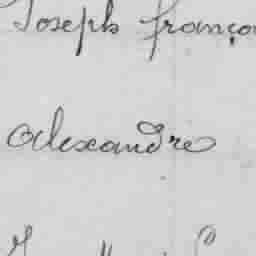 Joseph franço
Alexandre